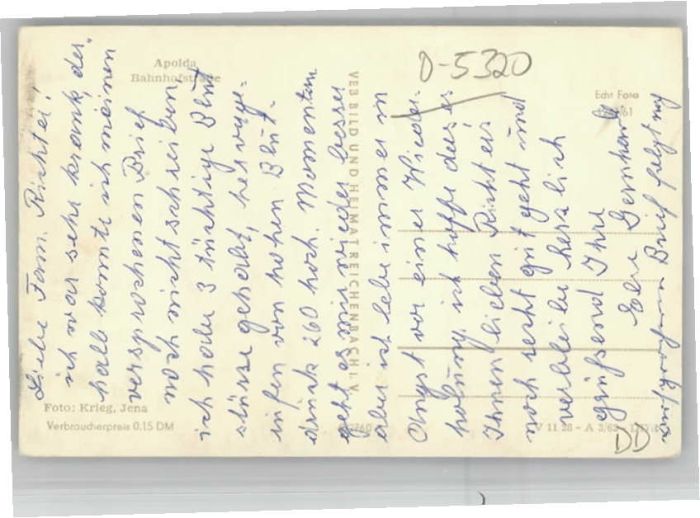 Apolda
Bahnhofstraße
D-5320
Echt Foto
VEB BILD UND HEIMAT REICHENBACH I. V.
Liebe Fam. Richter!
ich war sehr krank, des-
halb konnte ich meinen
versprochenen Brief
noch nicht schreiben
ich habe 3 tüchtige Blut
stürze gehabt, hervorge-
rufen von hohen Blut-
druck 260 hoch. Momentan
geht es mir wieder besser
aber ich lebe immer in
Angst vor einer Wieder-
holung. ich hoffe das es
Ihnen lieben Richters
noch recht gut geht und
verbleibe herzlich
grüßend Ihre
Gernhardt
Brief folgt
Foto: Krieg, Jena
Verbraucherpreis 0,15 DM
V 11 28 - A 3/62
DD